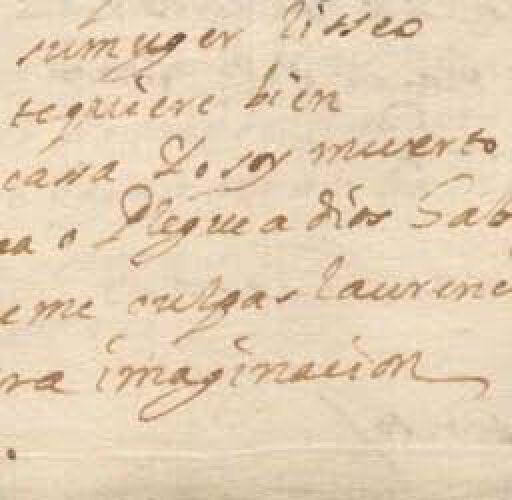 su muger lisseo
te quiere bien
cassa Yo soy muerto
a o Plegue a dios Sab
eme culgas laurenc
ra imaginacion